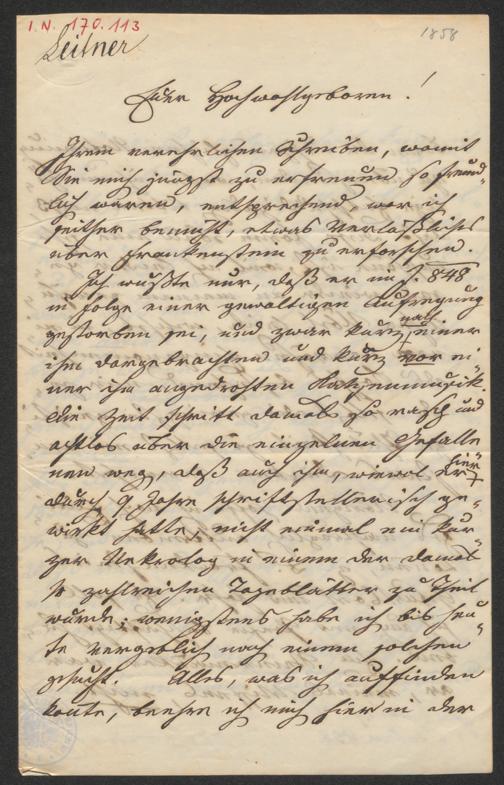 I.N. 170.113
1858
Leitner
Euer Hochwohlgeboren!
Ihrem verehrlichen Schreiben, womit
Sie mich jüngst zu erfreuen so freund-
lich waren, entsprechend, war ich
seither bemüht, etwas Verläßliches
über Frankenstein zu erforschen.
Ich wußte nur, daß er im J. 848
in Folge einer gewaltigen Aufregung
gestorben sei, und zwar kurz nach einer
ihm dargebrachten und kurz vor ei-
ner ihm angedrohten Katzenmusik.
Die Zeit schritt damals so rasch und
achtlos über die einzelnen Gefalle-
nen weg, daß auch ihm, wiewol Er hier
durch 9 Jahre schriftstellerisch ge-
wirkt hatte, nicht einmal ein kur-
zer Nekrolog in einem der damals
so zahlreichen Tageblätter zu Theil
wurde; wenigstens habe ich bis heu-
te vergeblich nach einem solchen
gesucht. Alles, was ich auffinden
konte, beehre ich mich hier in der